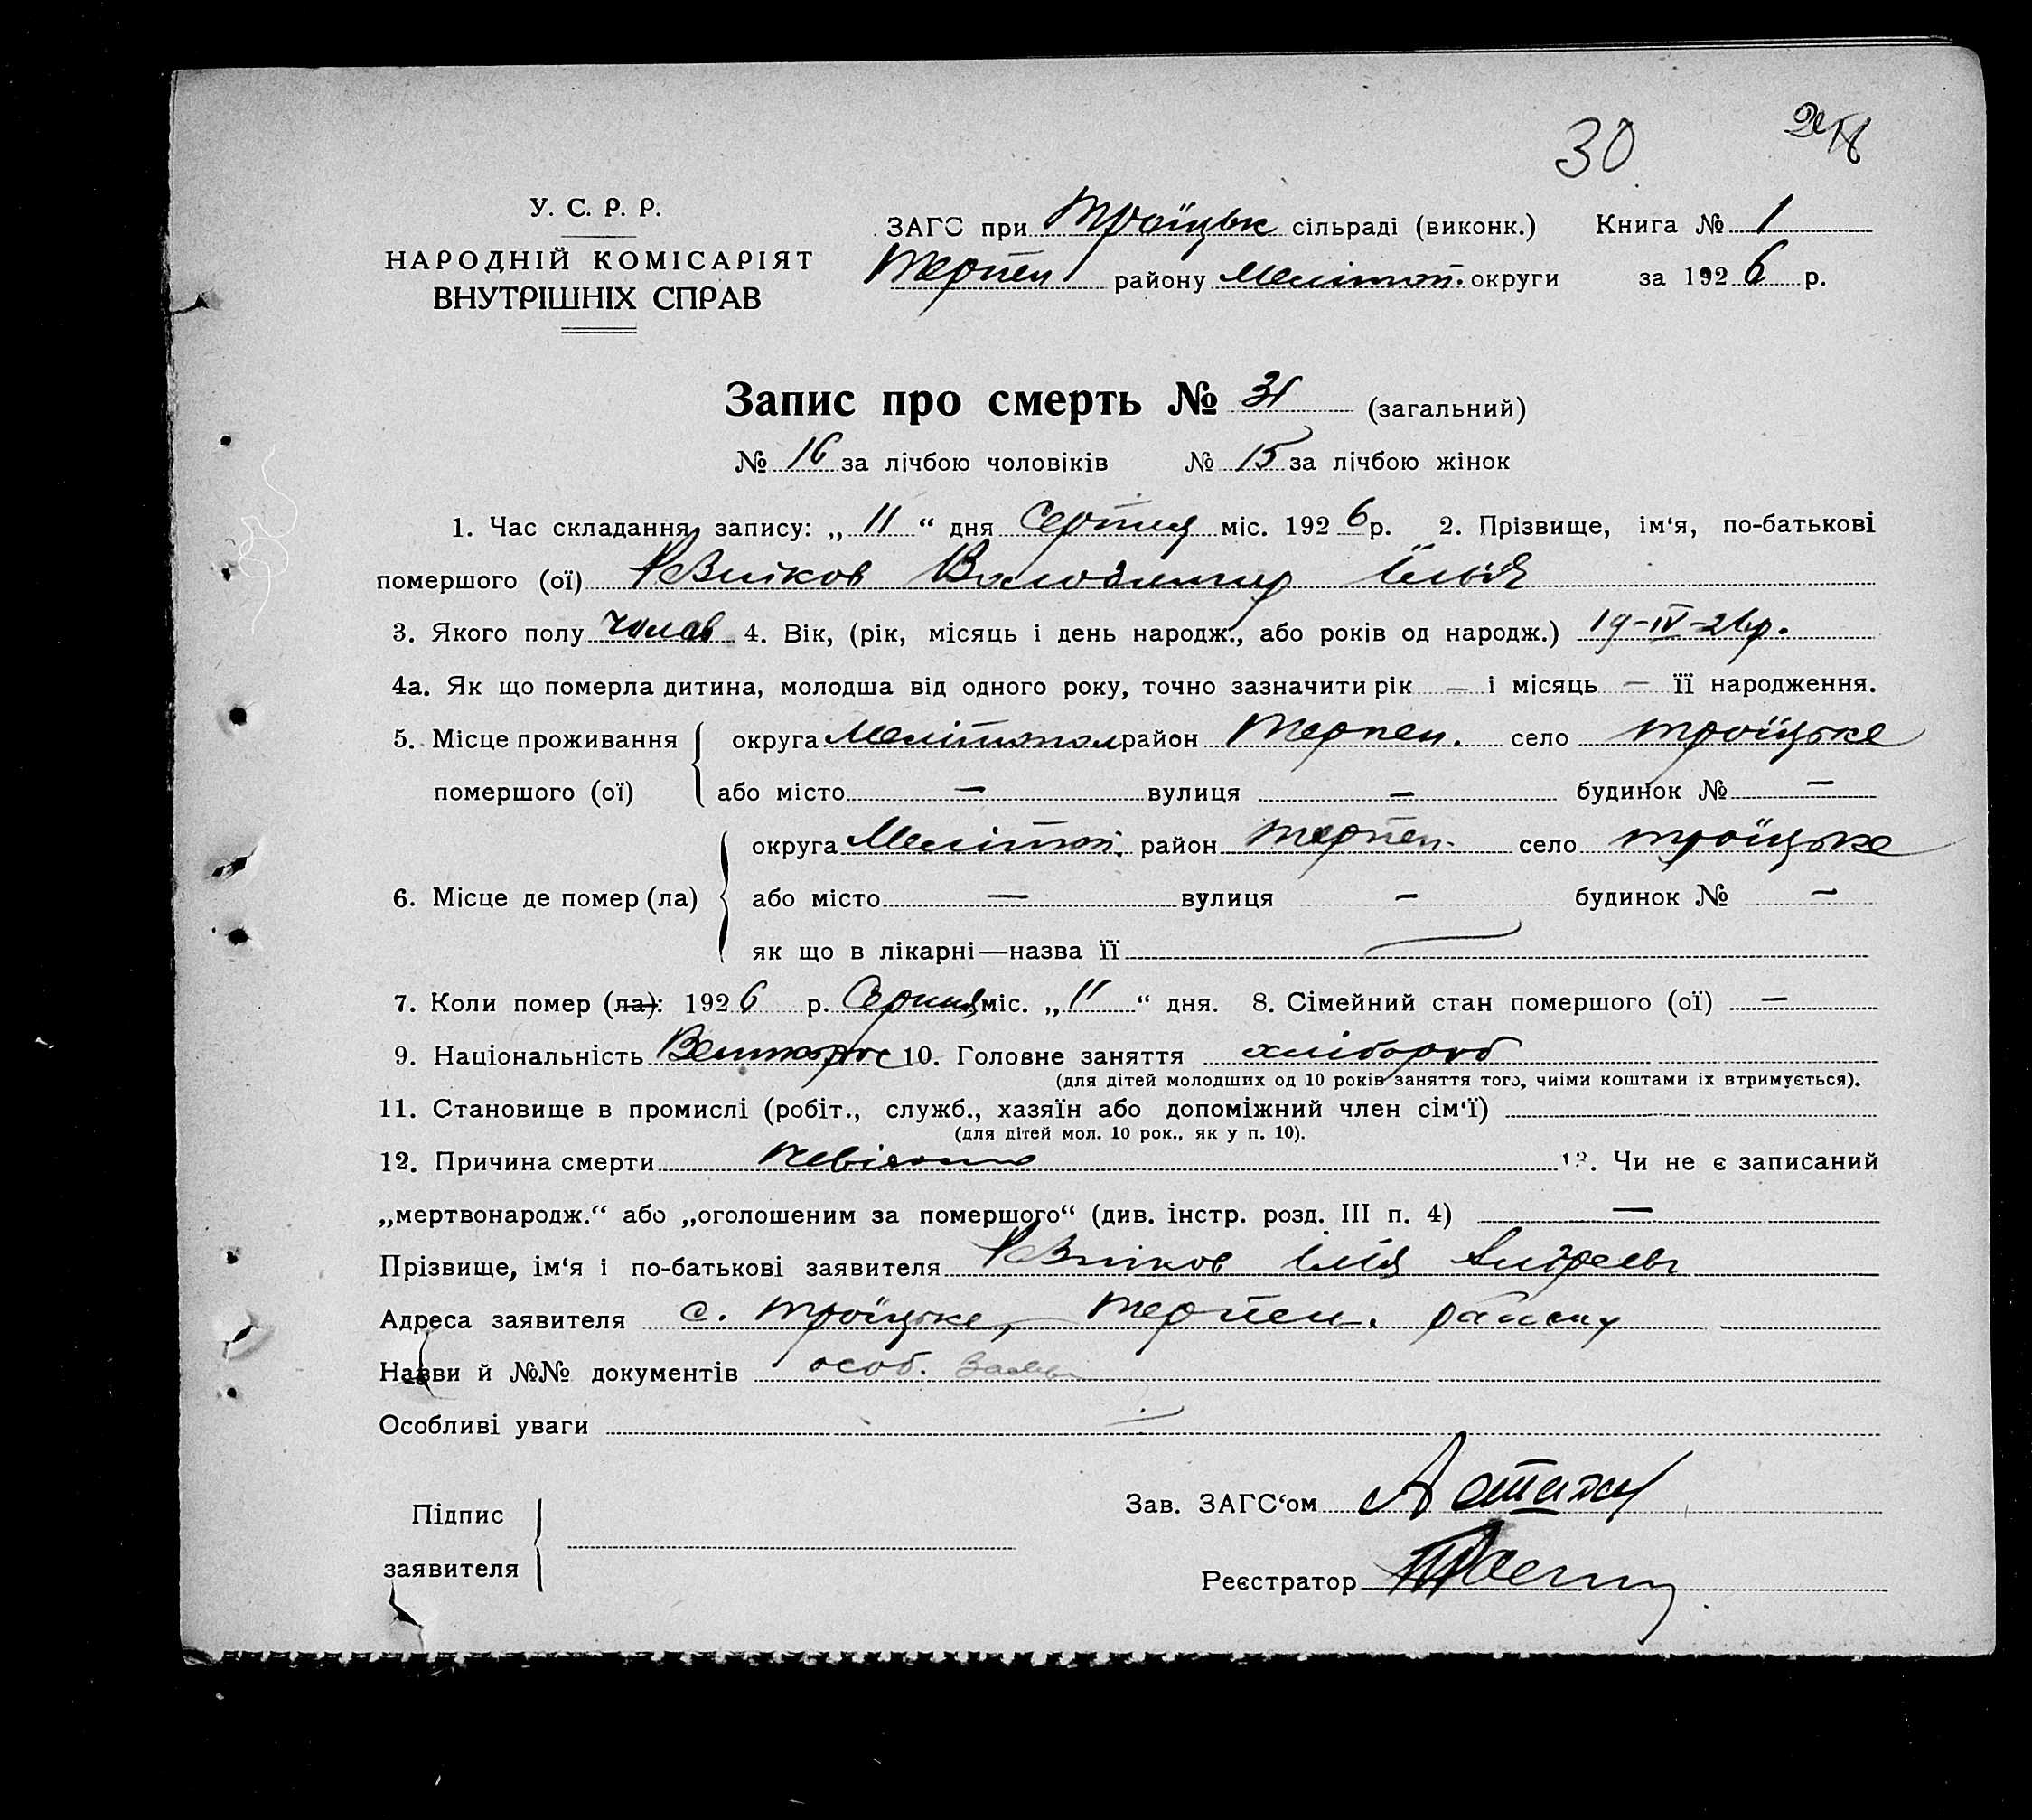 30
У. С. Р. Р.
НАРОДНІЙ КОМІСАРІЯТ
ВНУТРІШНІХ СПРАВ
ЗАГС при Троїцьк сільраді (виконк.) Книга № 1
Терпен району Меліттоп. округи за 1926 р.
Запис про смерть № 31 (загальний)
№ 16 за лічбою чоловіків № 15 за лічбою жінок
1. Час складання запису: „11“ дня Серпня міс. 1926 р. 2. Прізвище, ім‘я, по-батькові
помершого (ої) Володимир Ілья
3. Якого полу чолов 4. Вік, (рік, місяць і день народж., або років од народж.) 19-IV-26р.
4а. Як що померла дитина, молодша від одного року, точно зазначити рік — і місяць — її народження.
5. Місце проживання округа Мелітопол район Терпен. село Троїцьке
помершого (ої) або місто — вулиця — будинок № —
округа Мелітоп. район Терпен. село Троїцьке
6. Місце де помер (ла) або місто — вулиця — будинок № —
як що в лікарні—назва її
7. Коли помер (ла): 1926 р. Серпня міс. „11“ дня. 8. Сімейний стан помершого (ої) —
9. Національність Великорос 10. Головне заняття хлібороб
(для дітей молодших од 10 років заняття того, чиїми коштами їх втримується).
11. Становище в промислі (робіт., служб., хазяїн або допоміжний член сім‘ї)
(для дітей мол. 10 рок., як у п. 10).
12. Причина смерти невідомо 13. Чи не є записаний
„мертвонародж.“ або „оголошеним за помершого“ (див. інстр. розд. III п. 4) —
Прізвище, ім‘я і по-батькові заявителя Ілія Андреевг
Адреса заявителя с. Троїцьке, Терпен. району
Назви й №№ документів особ. заява
Особливі уваги
Підпис
заявителя
Зав. ЗАГС‘ом
Реєстратор